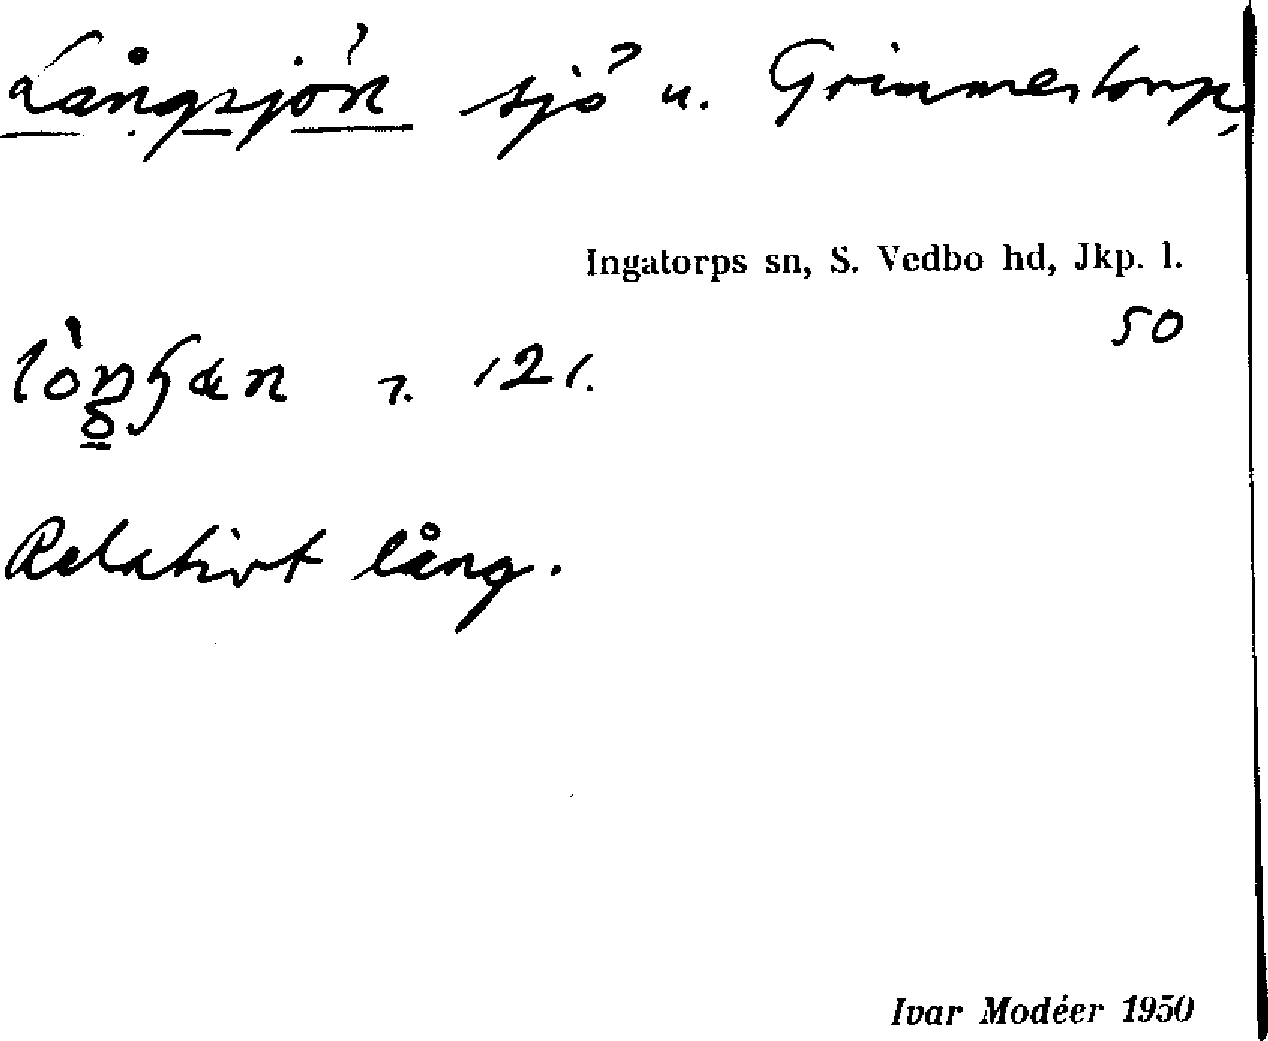 Långsjön sjö u. Grimmestorp,
Ingatorps sn, S. Vedbo hd, Jkp. l.
50
121.
Relativt lång.
Ivar Modéer 1950